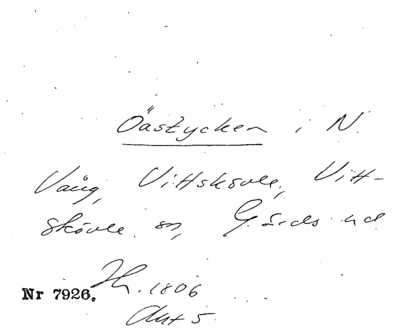 Öastycken i N.
Vång, Vittskövle, Vitt-
skövle sn, Gärds hd
Nr 7926. Lh. 1806
Akt 5.